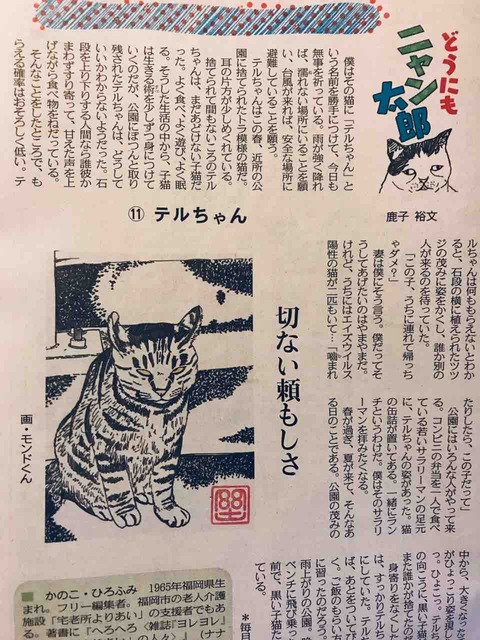 どうにも
ニャン太郎
鹿子 裕文
⑪ テルちゃん
僕はその猫に「テルちゃん」と
いう名前を勝手につけて、今日も
無事を祈っている。雨が強く降れ
ば、濡れない場所にいることを願
い、台風が来れば、安全な場所に
避難していることを願う。
テルちゃんはこの春、近所の公
園に捨てられたトラ模様の猫だ。
耳の片方が少しめくれている。
捨てられて間もないころのテル
ちゃんは、まだあどけない子猫だ
った。よく食べ、よく遊び、よく眠
る。そうした生活の中から、子猫
は生きる術を少しずつ身につけて
いくのだが、公園にぽつんと取り
残されたテルちゃんは、どうして
いいかわからないようだった。石
段を上り下りする人間なら誰彼か
まわずすり寄って、甘えた声を上
げながら食べ物をねだっている。
そんなことをしたところで、も
らえる確率はおそろしく低い。テ
ルちゃんは何ももらえないとわか
ると、石段の横に植えられたツツ
ジの茂みに姿をかくし、誰か別の
人が来るのを待っていた。
「この子、うちに連れて帰っち
ゃダメ？」
妻は僕にそう言う。僕だってそ
うしてあげたいのはやまやまだ。
けれど、うちにはエイズウイルス
陽性の猫が二匹もいて…「噛まれ
たりしたら、この子だって」
公園にはいろんな人がやって来
る。コンビニの弁当を一人で食べ
ている若いサラリーマンの足元
に、テルちゃんの姿があった。猫
の缶詰が置いてある。一緒にラン
チというわけだ。僕はそのサラリ
ーマンを拝みたくなる。
春が過ぎ、夏が来て、そんなあ
る日のことである。公園の茂みの
中から、大きくなった
がひょっこり姿を現
っ。ひょこっ。テ
の向こうに、黒い子猫
また誰かが捨てた
身寄りをなくし
は、すっかりテル
にしていた。テル
ば、あとをついて
く。ご飯のもらい
に習ったのだろう
雨上がりの公園
ベンチに飛び乗っ
前で、黒い子猫た
ている。
＊毎月
切ない頼もしさ
画・モンドくん
かのこ・ひろふみ 1965年福岡県生
まれ。フリー編集者。福岡市の老人介護
施設「宅老所よりあい」の支援者でもあ
る。著書に「へろへろ 雑誌『ヨレヨレ』